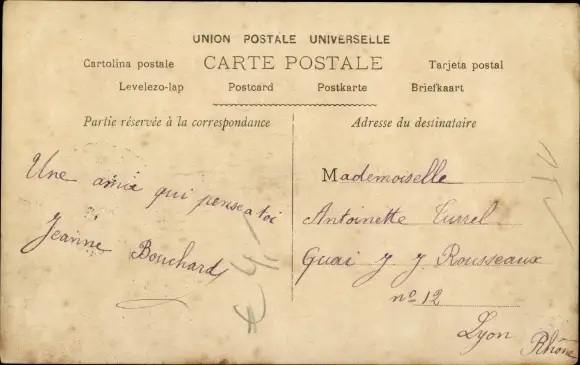 UNION POSTALE UNIVERSELLE
CARTE POSTALE
Cartolina postale
Tarjeta postal
Levelezo-lap
Postcard
Postkarte
Briefkaart
Partie réservée à la correspondance
Adresse du destinataire
Une amie qui pense a toi
Jeanne Bouchard
Mademoiselle
Antoinette Turrel
Quai J J Rousseaux
n° 12
Lyon
Rhône